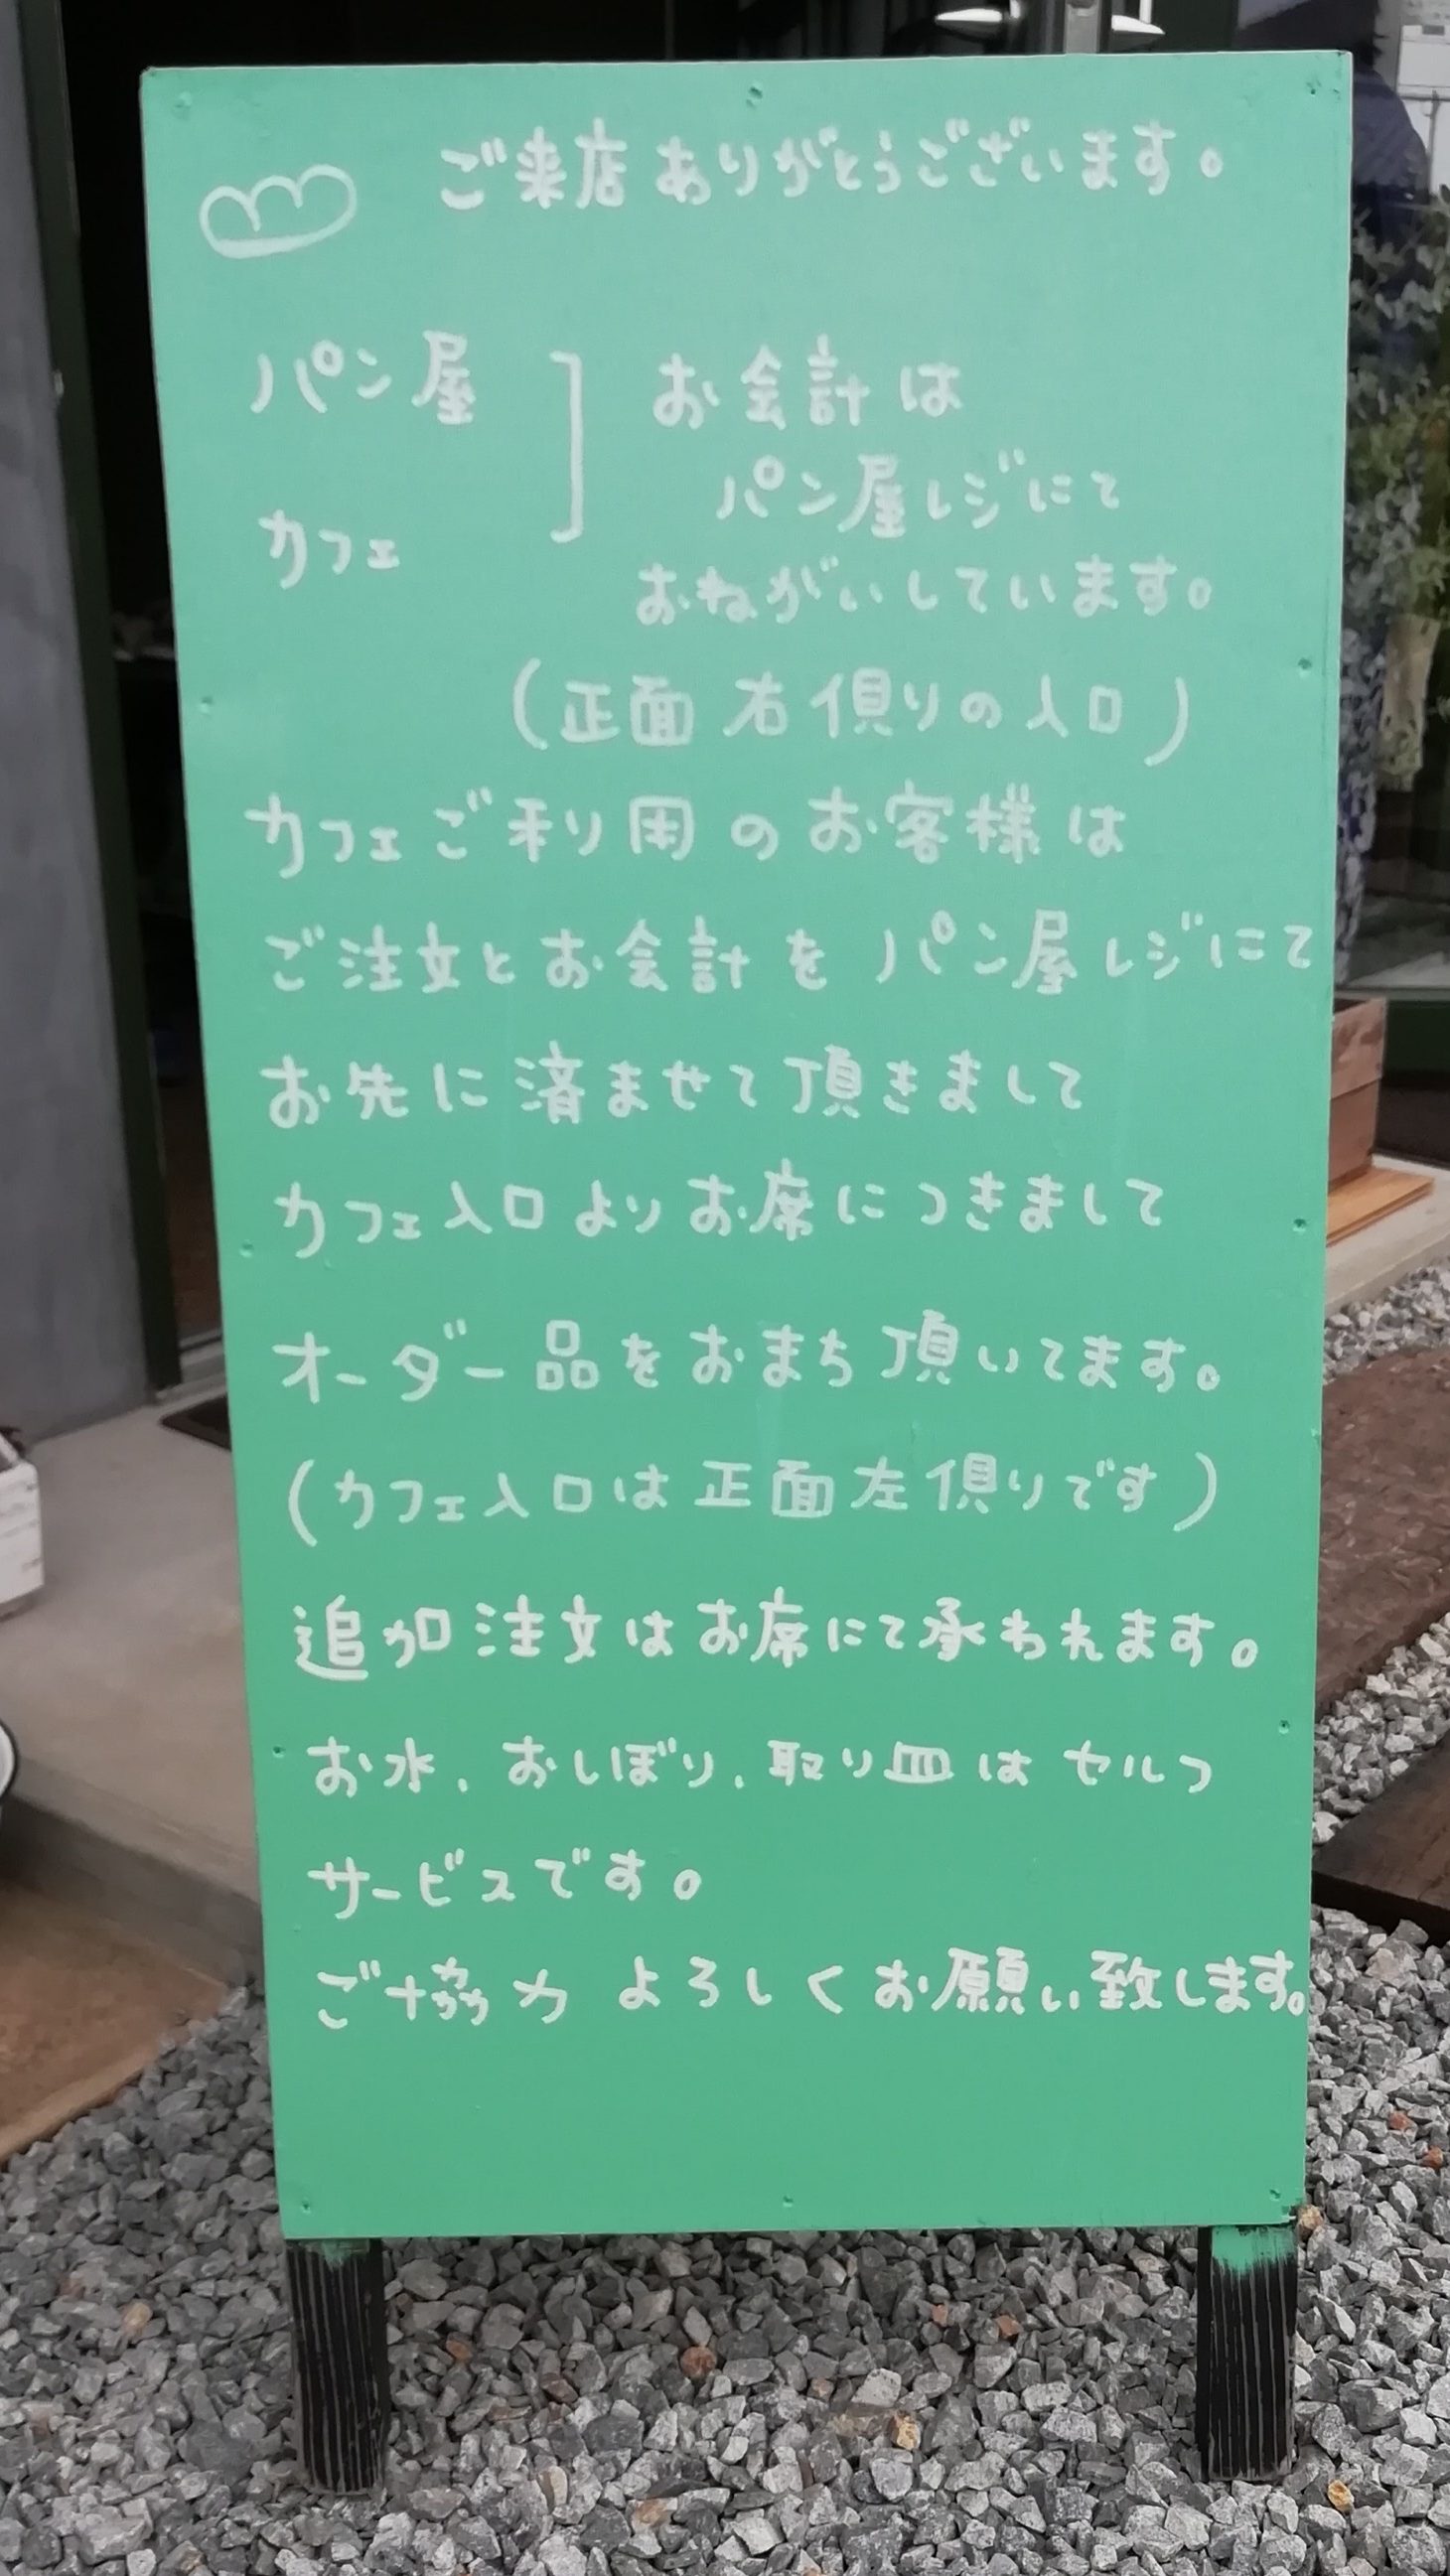 ご来店ありがとうございます。
パン屋
カフェ
お会計は
パン屋レジにて
おねがいしています。
(正面右側りの入口)
カフェご利用のお客様は
ご注文とお会計をパン屋レジにて
お先に済ませて頂きまして
カフェ入口よりお席につきまして
オーダー品をおまち頂いてます。
(カフェ入口は正面左側りです)
追加注文はお席にて承われます。
お水、おしぼり、取り皿はセルフ
サービスです。
ご協力よろしくお願い致します。